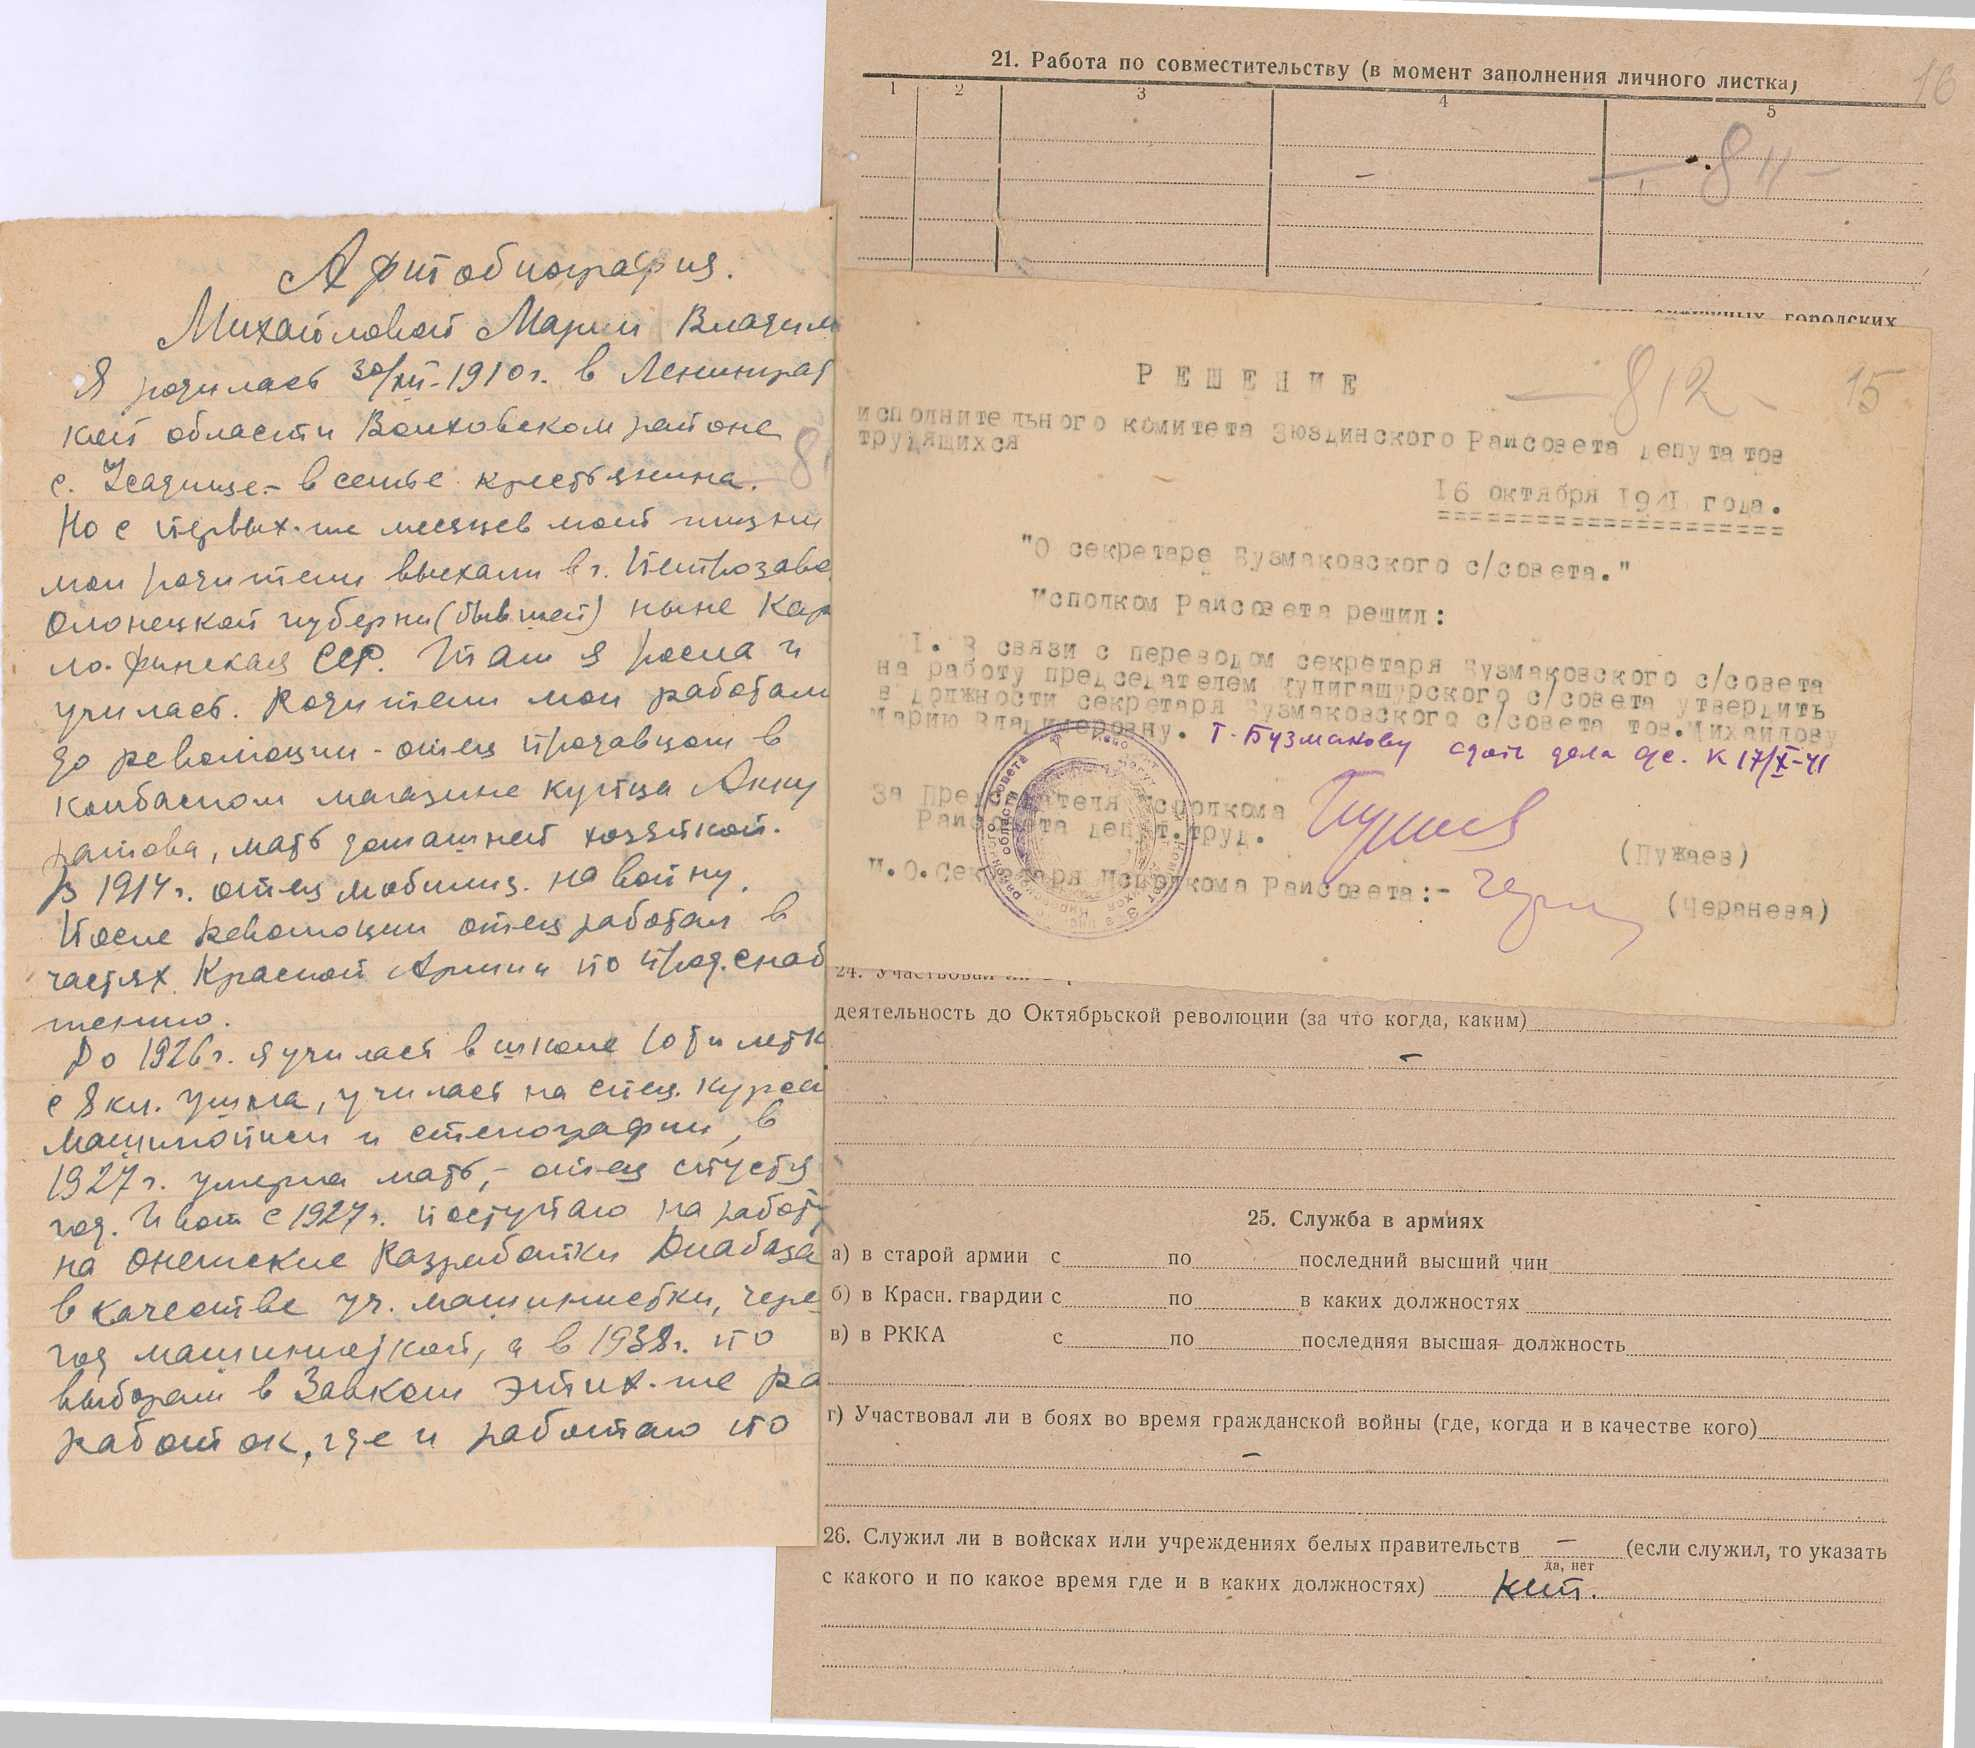 Афитобиография.
Михайловой Марии Владим
Я родилась 30/XII-1910г. в Ленинград
кой области Волховском районе
с. Усадище - в семье крестьянина.
Но с первых-же месяцев моей жизни
мои родители выехали в г. Петрозаво
Олонецкой губерни (бывшей) ныне Кар
ло-финская ССР. Там я росла и
училась. Родители мои работали
до революции - отец продавцом в
колбасном магазине купца
мать домашней хозяйкой.
В 1914г. отец мобилиз. на войну.
После Революции отец работал в
частях Красной Армии по прод.снаб
жению.
До 1926г. я училась в школе 10ти летк
с 8 кл. ушла, училась на спец. курса
машинописи и стенографии, в
1927г. умерла мать, - отец спустя
год. И вот с 1927г. поступаю на работу
на Онежские Разработки Диабаза
в качестве уч. машинистки, чере
год машинисткой, а в 1938г. по
выборам в Завком этих-же ра
работок, где и работаю по
21. Работа по совместительству (в момент заполнения личного листка)
16
1 2 3 4 5
городских
РЕШЕНИЕ
812 15
исполнительного комитета Зюздинского Райсовета депутатов
трудящихся
16 октября 1941 года.
"О секретаре Бузмаковского с/совета."
Исполком Райсовета решил:
1. В связи с переводом секретаря Бузмаковского с/совета
на работу председателем Кулигашурского с/совета утвердить
в должности секретаря Бузмаковского с/совета тов.Михайлову
Марию Владимеровну. Т. Бузмакову сдать дела с/с. к 17/X-41
За Председателя Исполкома
Райсовета депут.труд.
(Пужаев)
И.О.Секретаря Исполкома Райсовета:-
(Черанева)
24. Участвовал ли
деятельность до Октябрьской революции (за что когда, каким)
25. Служба в армиях
а) в старой армии с по последний высший чин
б) в Красн. гвардии с по в каких должностях
в) в РККА с по последняя высшая должность
г) Участвовал ли в боях во время гражданской войны (где, когда и в качестве кого)
26. Служил ли в войсках или учреждениях белых правительств — (если служил, то указать
да, нет
с какого и по какое время где и в каких должностях) нет.